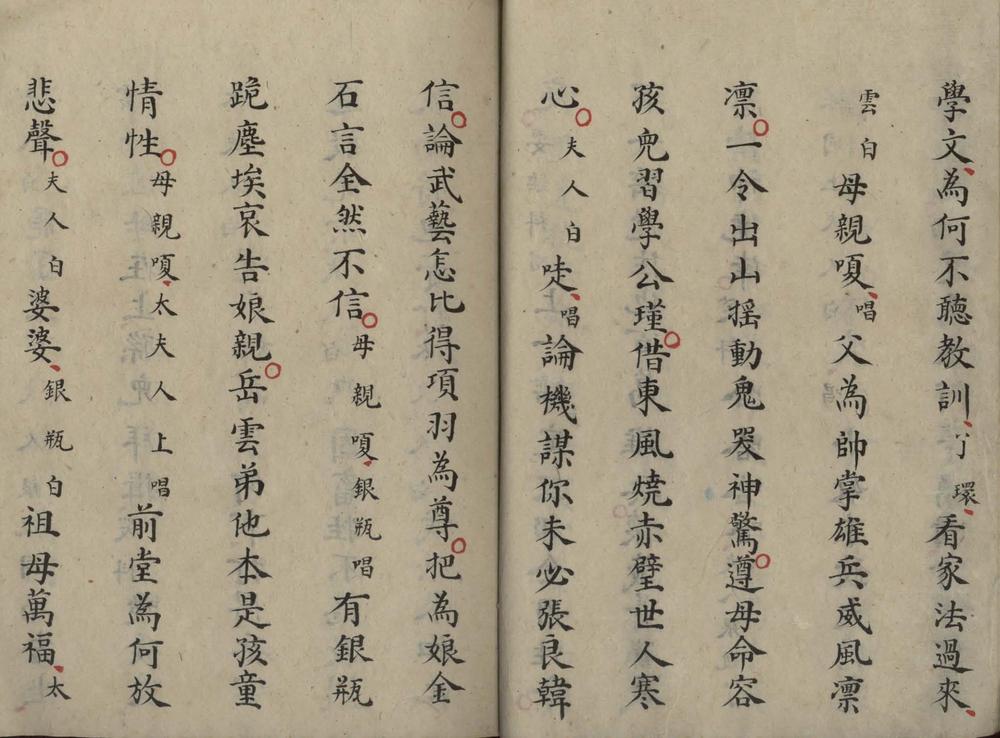 學文為何不聽教訓丫環看家法過來
雲白母親嗄唱父為帥掌雄兵威風凛
凛一令出山揺動鬼哭神驚遵母命容
孩兒習學公瑾借東風燒赤壁世人寒
心夫人白唗唱論機謀你未必張良韓
信論武藝怎比得項羽為尊把為娘金
石言全然不信母親嗄銀瓶唱有銀瓶
跪塵埃哀告娘親岳雲弟他本是孩童
情性母親嗄太夫人上唱前堂為何放
悲聲夫人白婆婆銀瓶白祖母萬福太